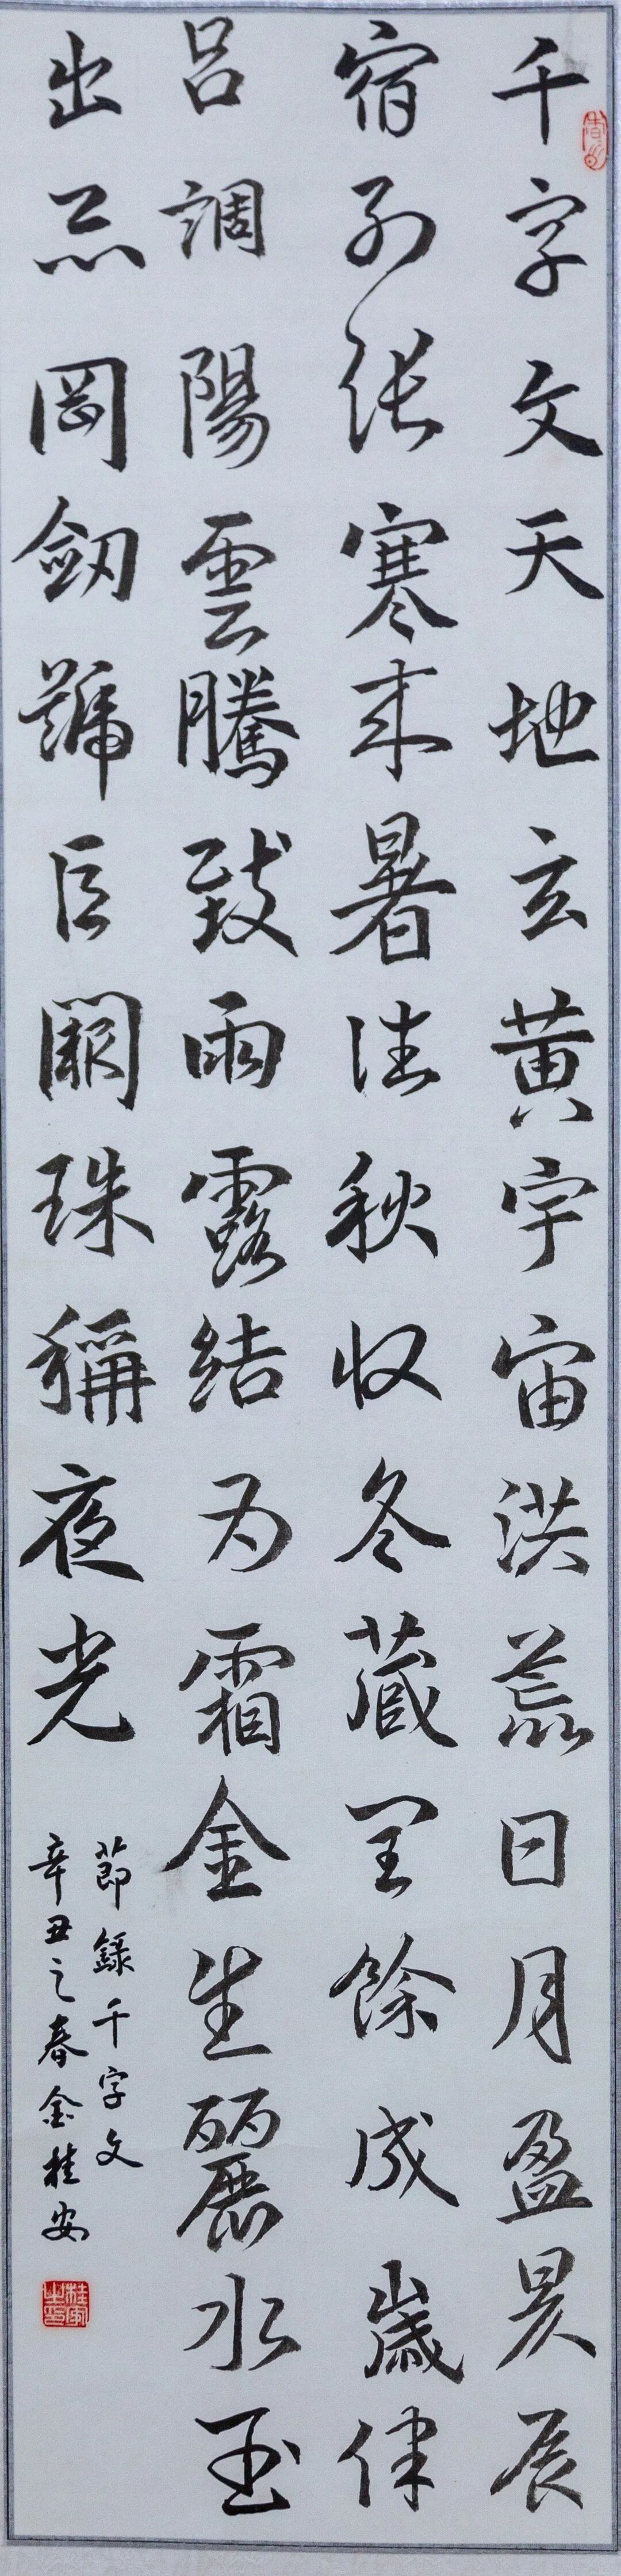 千字文天地玄黄宇宙洪荒日月盈昃辰
宿列張寒来暑往秋收冬藏閏餘成歲律
呂調陽雲騰致雨露結為霜金生麗水玉
出崑岡劒號巨闕珠稱夜光
節錄千字文
辛丑之春金桂安